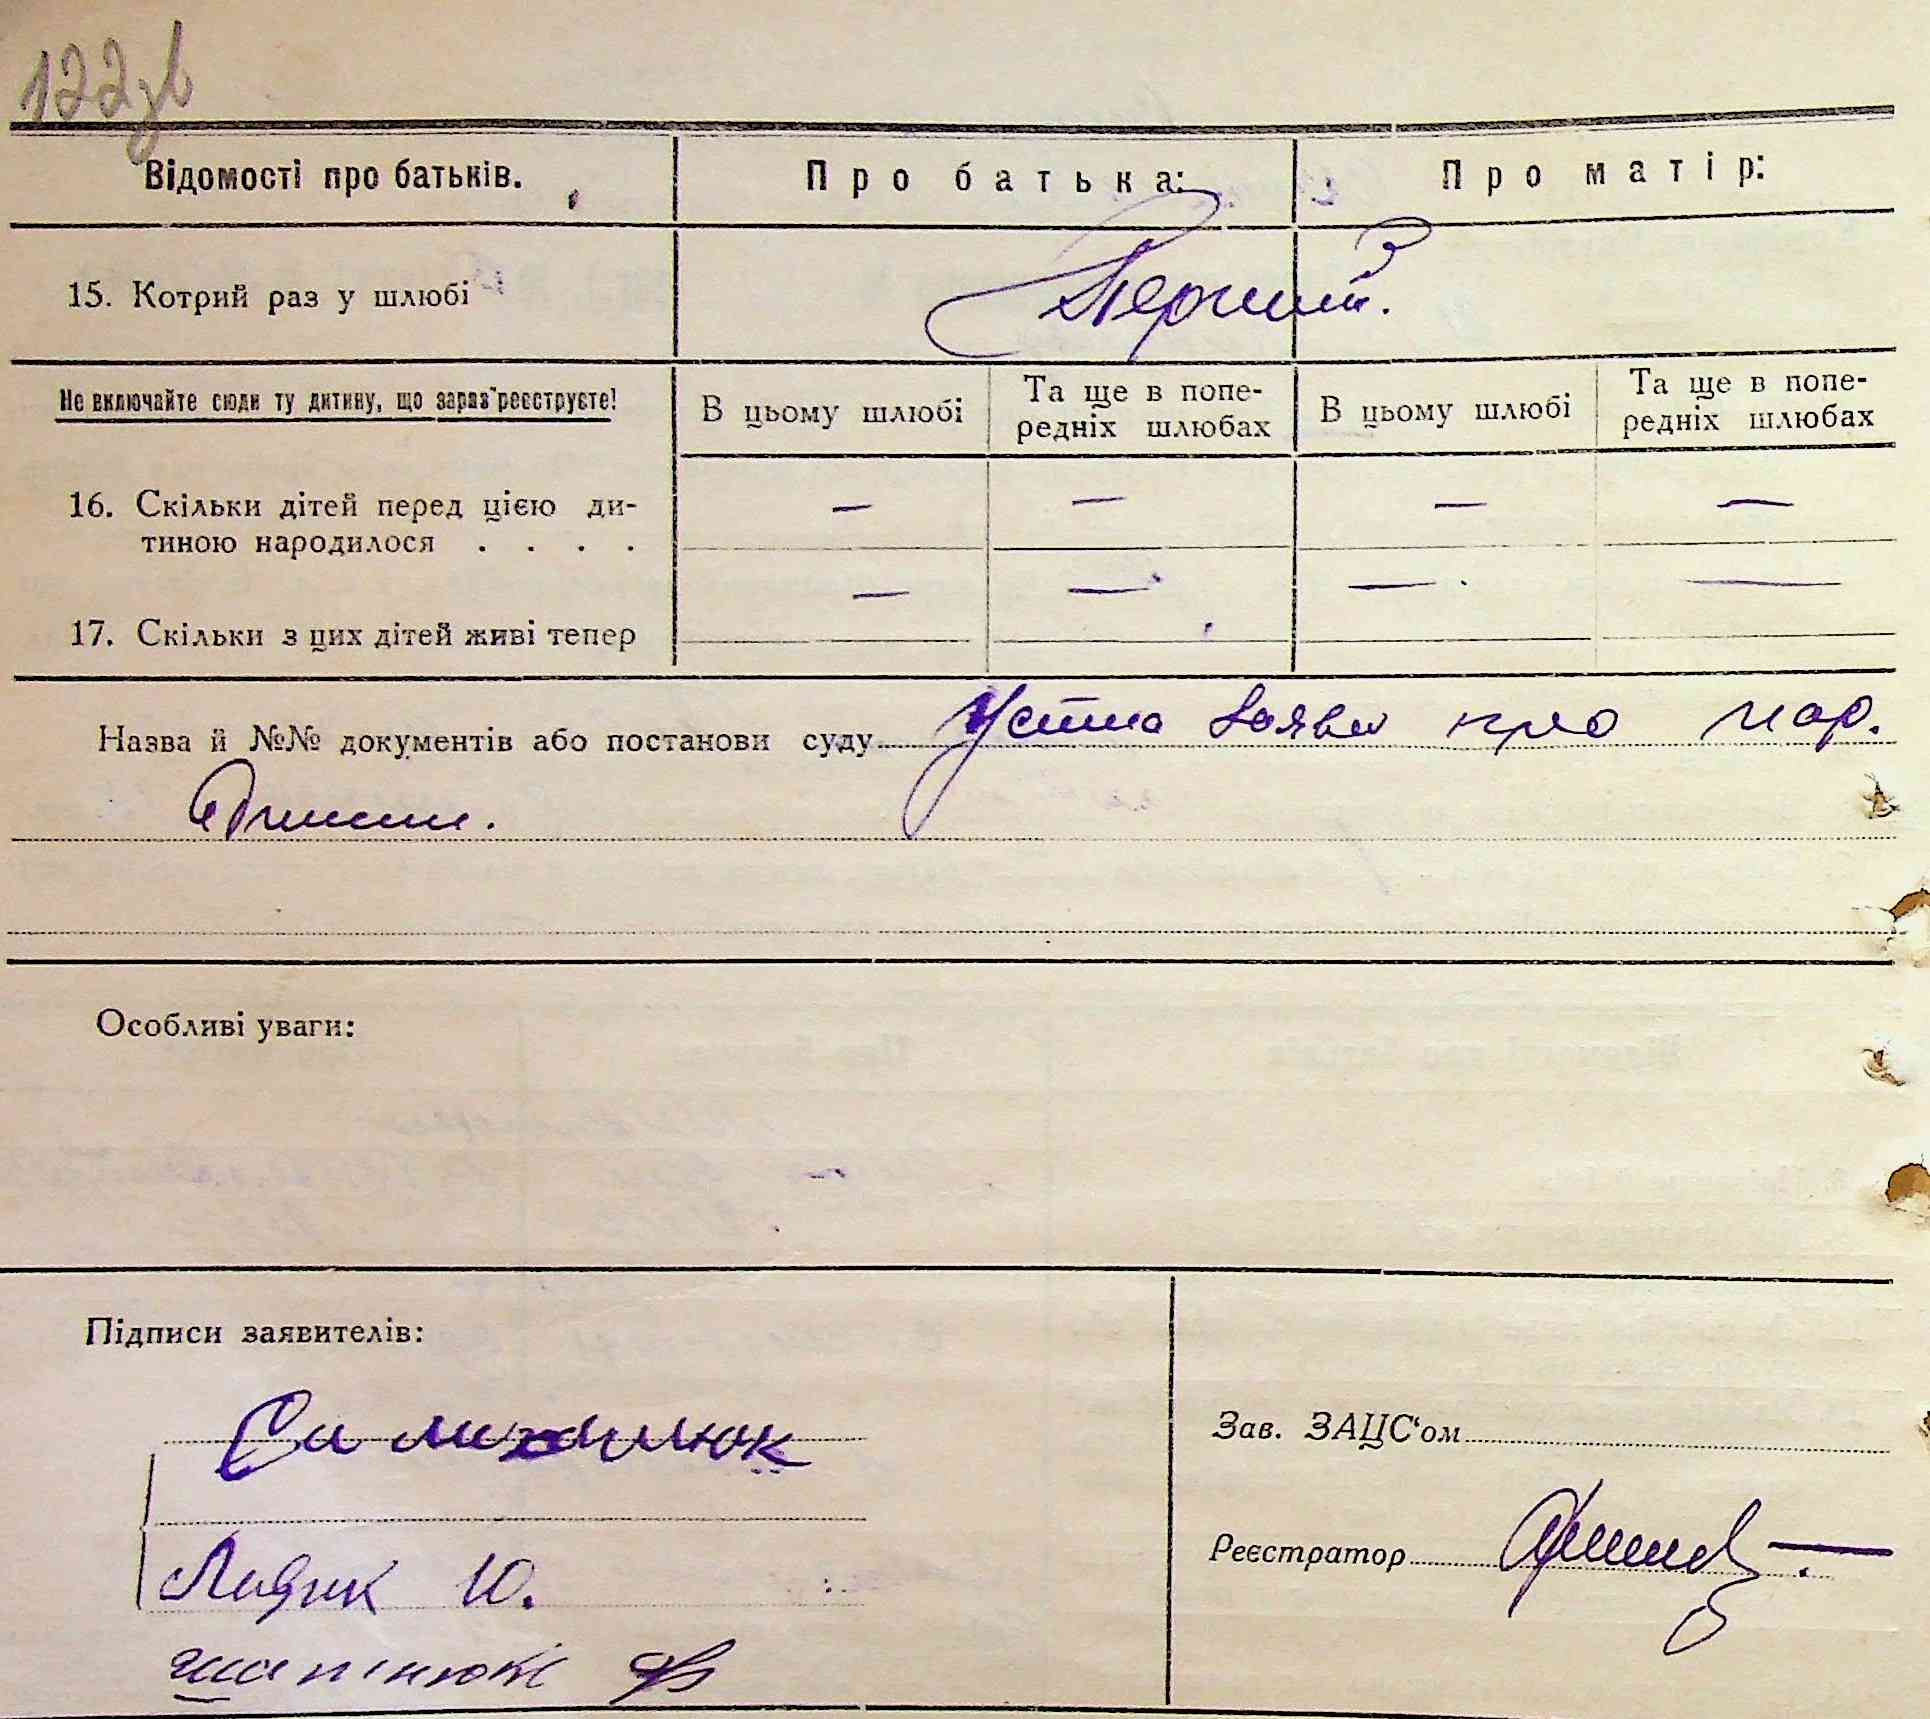 122зв
Відомості про батьків. Про батька: Про матір:
15. Котрий раз у шлюбі Перший.
Не включайте сюди ту дитину, що зараз реєструєте! В цьому шлюбі Та ще в попе-
редніх шлюбах В цьому шлюбі Та ще в попе-
редніх шлюбах
16. Скільки дітей перед цією ди-
тиною народилося . . . . — — — —
17. Скільки з цих дітей живі тепер — — — —
Назва й №№ документів або постанови суду Устна заява про нар.
дитини.
Особливі уваги:
Підписи заявителів:
Зав. ЗАЦС'ом
Реєстратор
Ю.